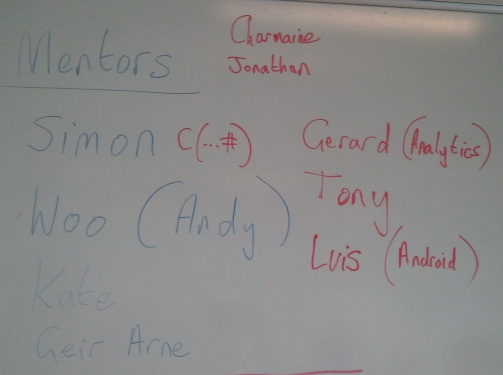 Mentors
Charmaine
Jonathan
Simon C(...#)
Woo (Andy)
Kate
Geir Arne
Gerard (Analytics)
Tony
Luis (Android)